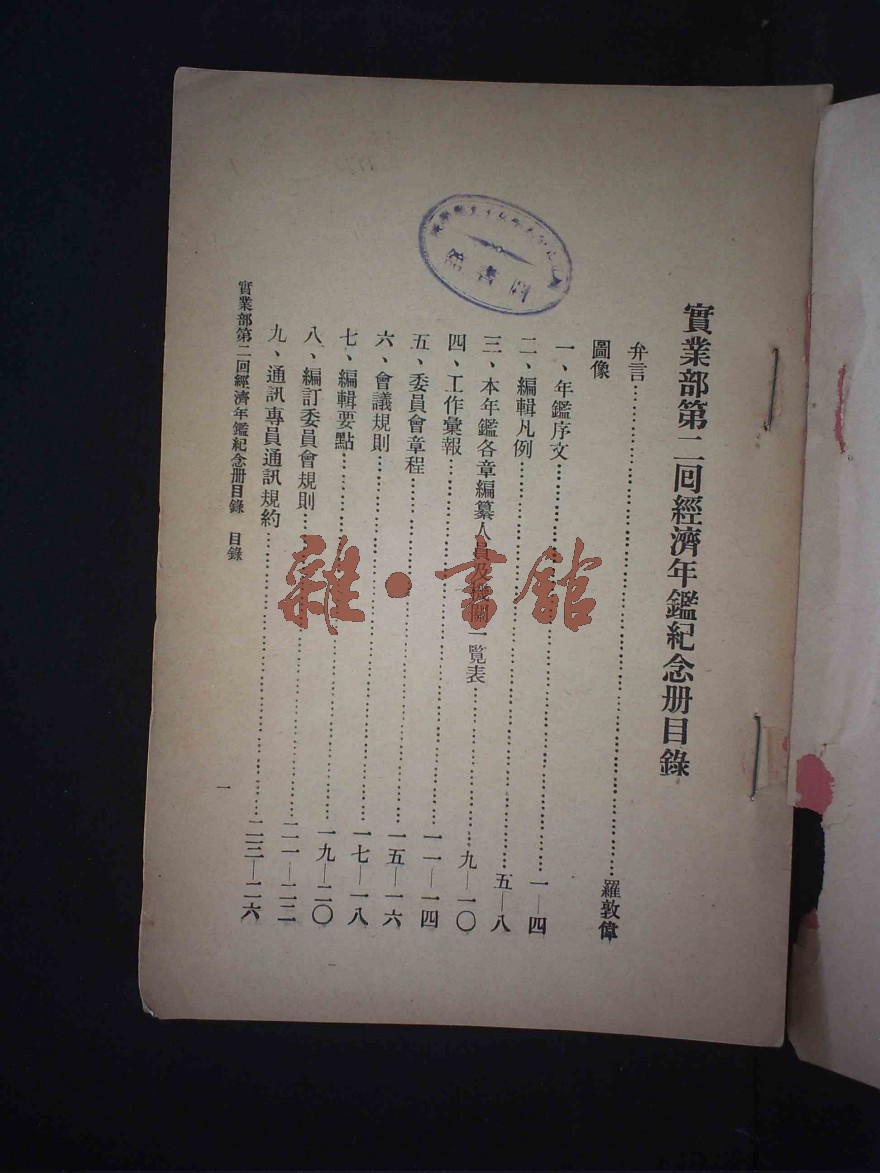 實業部第二回經濟年鑑紀念册目錄
弁言……羅敦偉
圖像
一、年鑑序文……一—四
二、編輯凡例……五—八
三、本年鑑各章編纂人員及機關一覽表……九—一〇
四、工作彙報……一一—一四
五、委員會章程……一五—一六
六、會議規則……一七—一八
七、編輯要點……一九—二〇
八、編訂委員會規則……二一—二二
九、通訊專員通訊規約……二三—二六
實業部第二回經濟年鑑紀念册目錄 目錄
一
雜·書館
圖書館